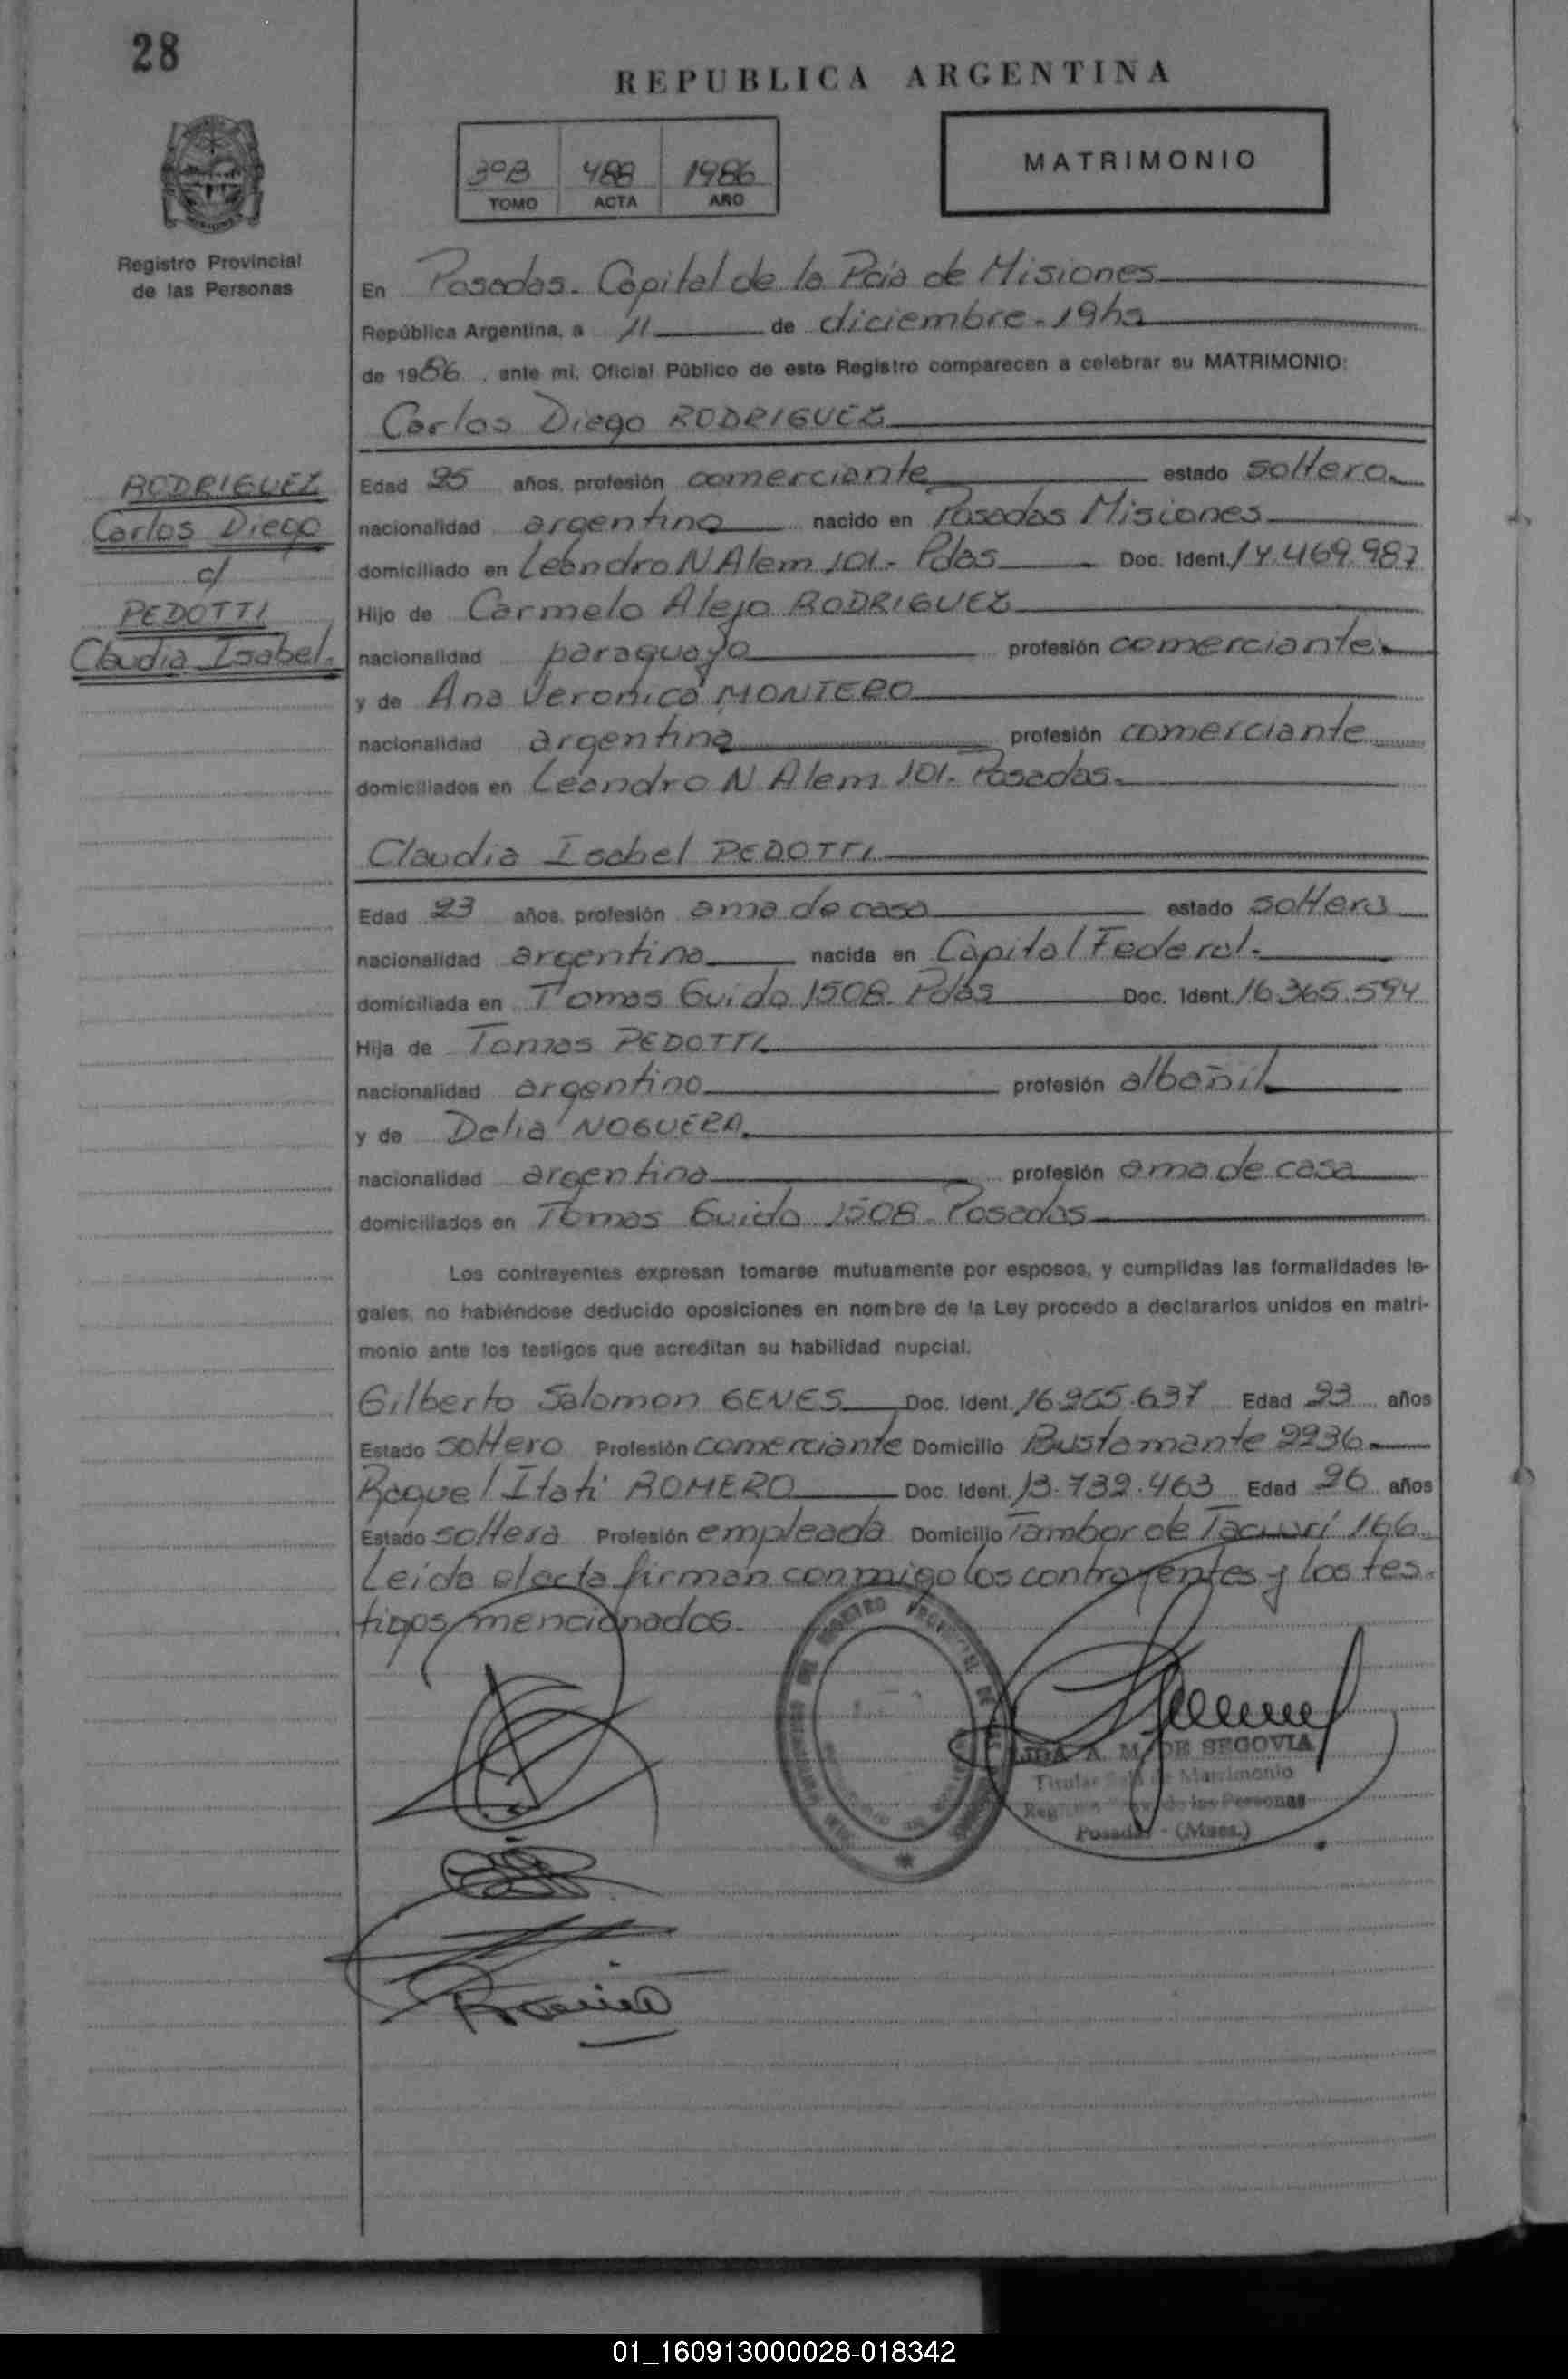 28
REPUBLICA ARGENTINA
3ºB 488 1986
TOMO ACTA AÑO
MATRIMONIO
Registro Provincial
de las Personas
En Posadas. Capital de la Pcia de Misiones
República Argentina, a 11 de diciembre - 19hs
de 1986, ante mi, Oficial Público de este Registro comparecen a celebrar su MATRIMONIO:
Carlos Diego RODRIGUEZ
RODRIGUEZ
Carlos Diego
c/
PEDOTTI
Claudia Isabel.
Edad 25 años, profesión comerciante estado soltero.
nacionalidad argentina nacido en Posadas Misiones
domiciliado en Leandro N Alem 101.- Pdas Doc. Ident. 14.469.987
Hijo de Carmelo Alejo RODRIGUEZ
nacionalidad paraguayo profesión comerciante
y de Ana Veronica MONTERO
nacionalidad argentina profesión comerciante
domiciliados en Leandro N Alem 101.- Posadas.
Claudia Isabel PEDOTTI
Edad 23 años, profesión ama de casa estado soltera
nacionalidad argentina nacida en Capital Federal.
domiciliada en Tomas Guido 1508. Pdas Doc. Ident. 16.365.594
Hija de Tomas PEDOTTI
nacionalidad argentino profesión albañil
y de Delia NOGUERA
nacionalidad argentina profesión ama de casa
domiciliados en Tomas Guido 1508. Posadas
Los contrayentes expresan tomarse mutuamente por esposos, y cumplidas las formalidades le-
gales, no habiéndose deducido oposiciones en nombre de la Ley procedo a declararlos unidos en matri-
monio ante los testigos que acreditan su habilidad nupcial.
Gilberto Salomon GENES Doc. Ident. 16.265.637 Edad 23 años
Estado soltero Profesión comerciante Domicilio Bustamante 2236
Raquel Itati ROMERO Doc. Ident. 13.732.463 Edad 26 años
Estado soltera Profesión empleada Domicilio Tambor de Tacuarí 166
Leida el acta firman conmigo los contrayentes y los tes.
tigos mencionados.
A. M. DE SEGOVIA
Titular de Matrimonio
de las Personas
Posadas - (Mnes.)
01_160913000028-018342